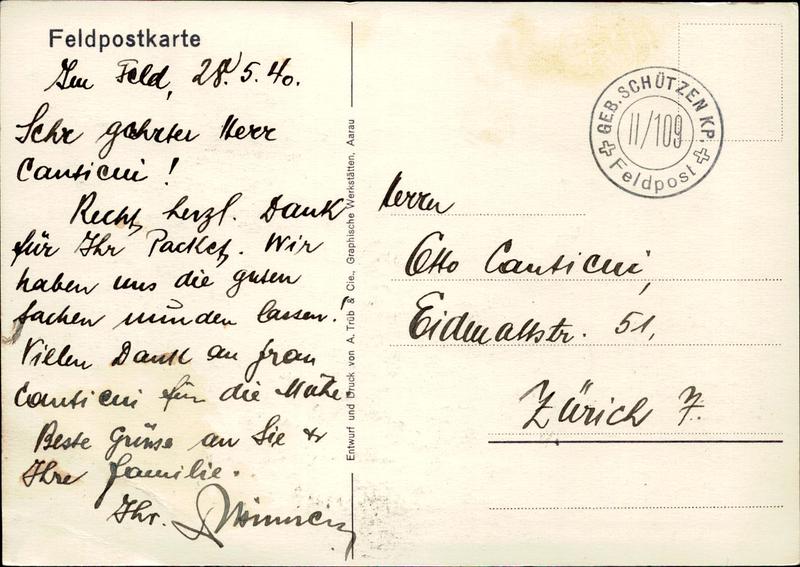 Feldpostkarte
Im Feld, 28.5.40.
Sehr gehrter Herr
Canticni!
Recht herzl. Dank
für Ihr Packet. Wir
haben uns die guten
sachen munden lassen!
Villen Dank an frau
Canticni für die Mühe.
Beste Grüsse an Sie &
Ihre familie.
Ihr.
Entwurf und Druck von A. Trüb & Cie., Graphische Werkstätten, Aarau
GEB. SCHÜTZEN KP.
II/109
Feldpost
Herrn
Otto Canticni,
Eidmattstr. 51,
Zürich 7.